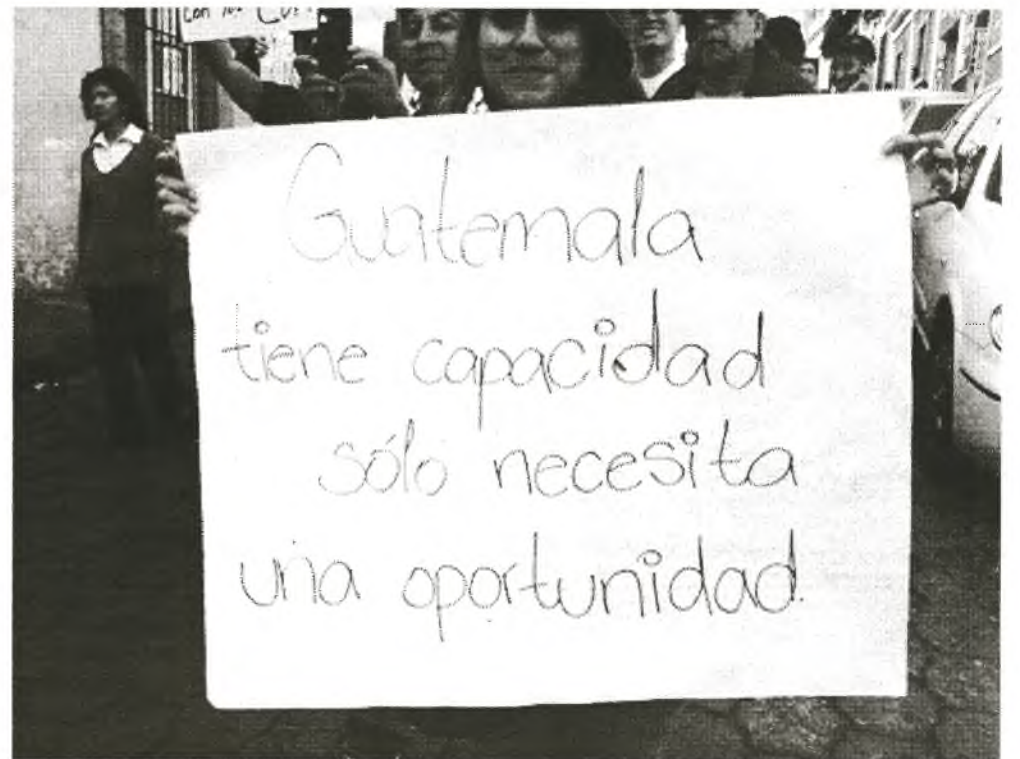 con los
Guatemala
tiene capacidad
sólo necesita
una oportunidad.